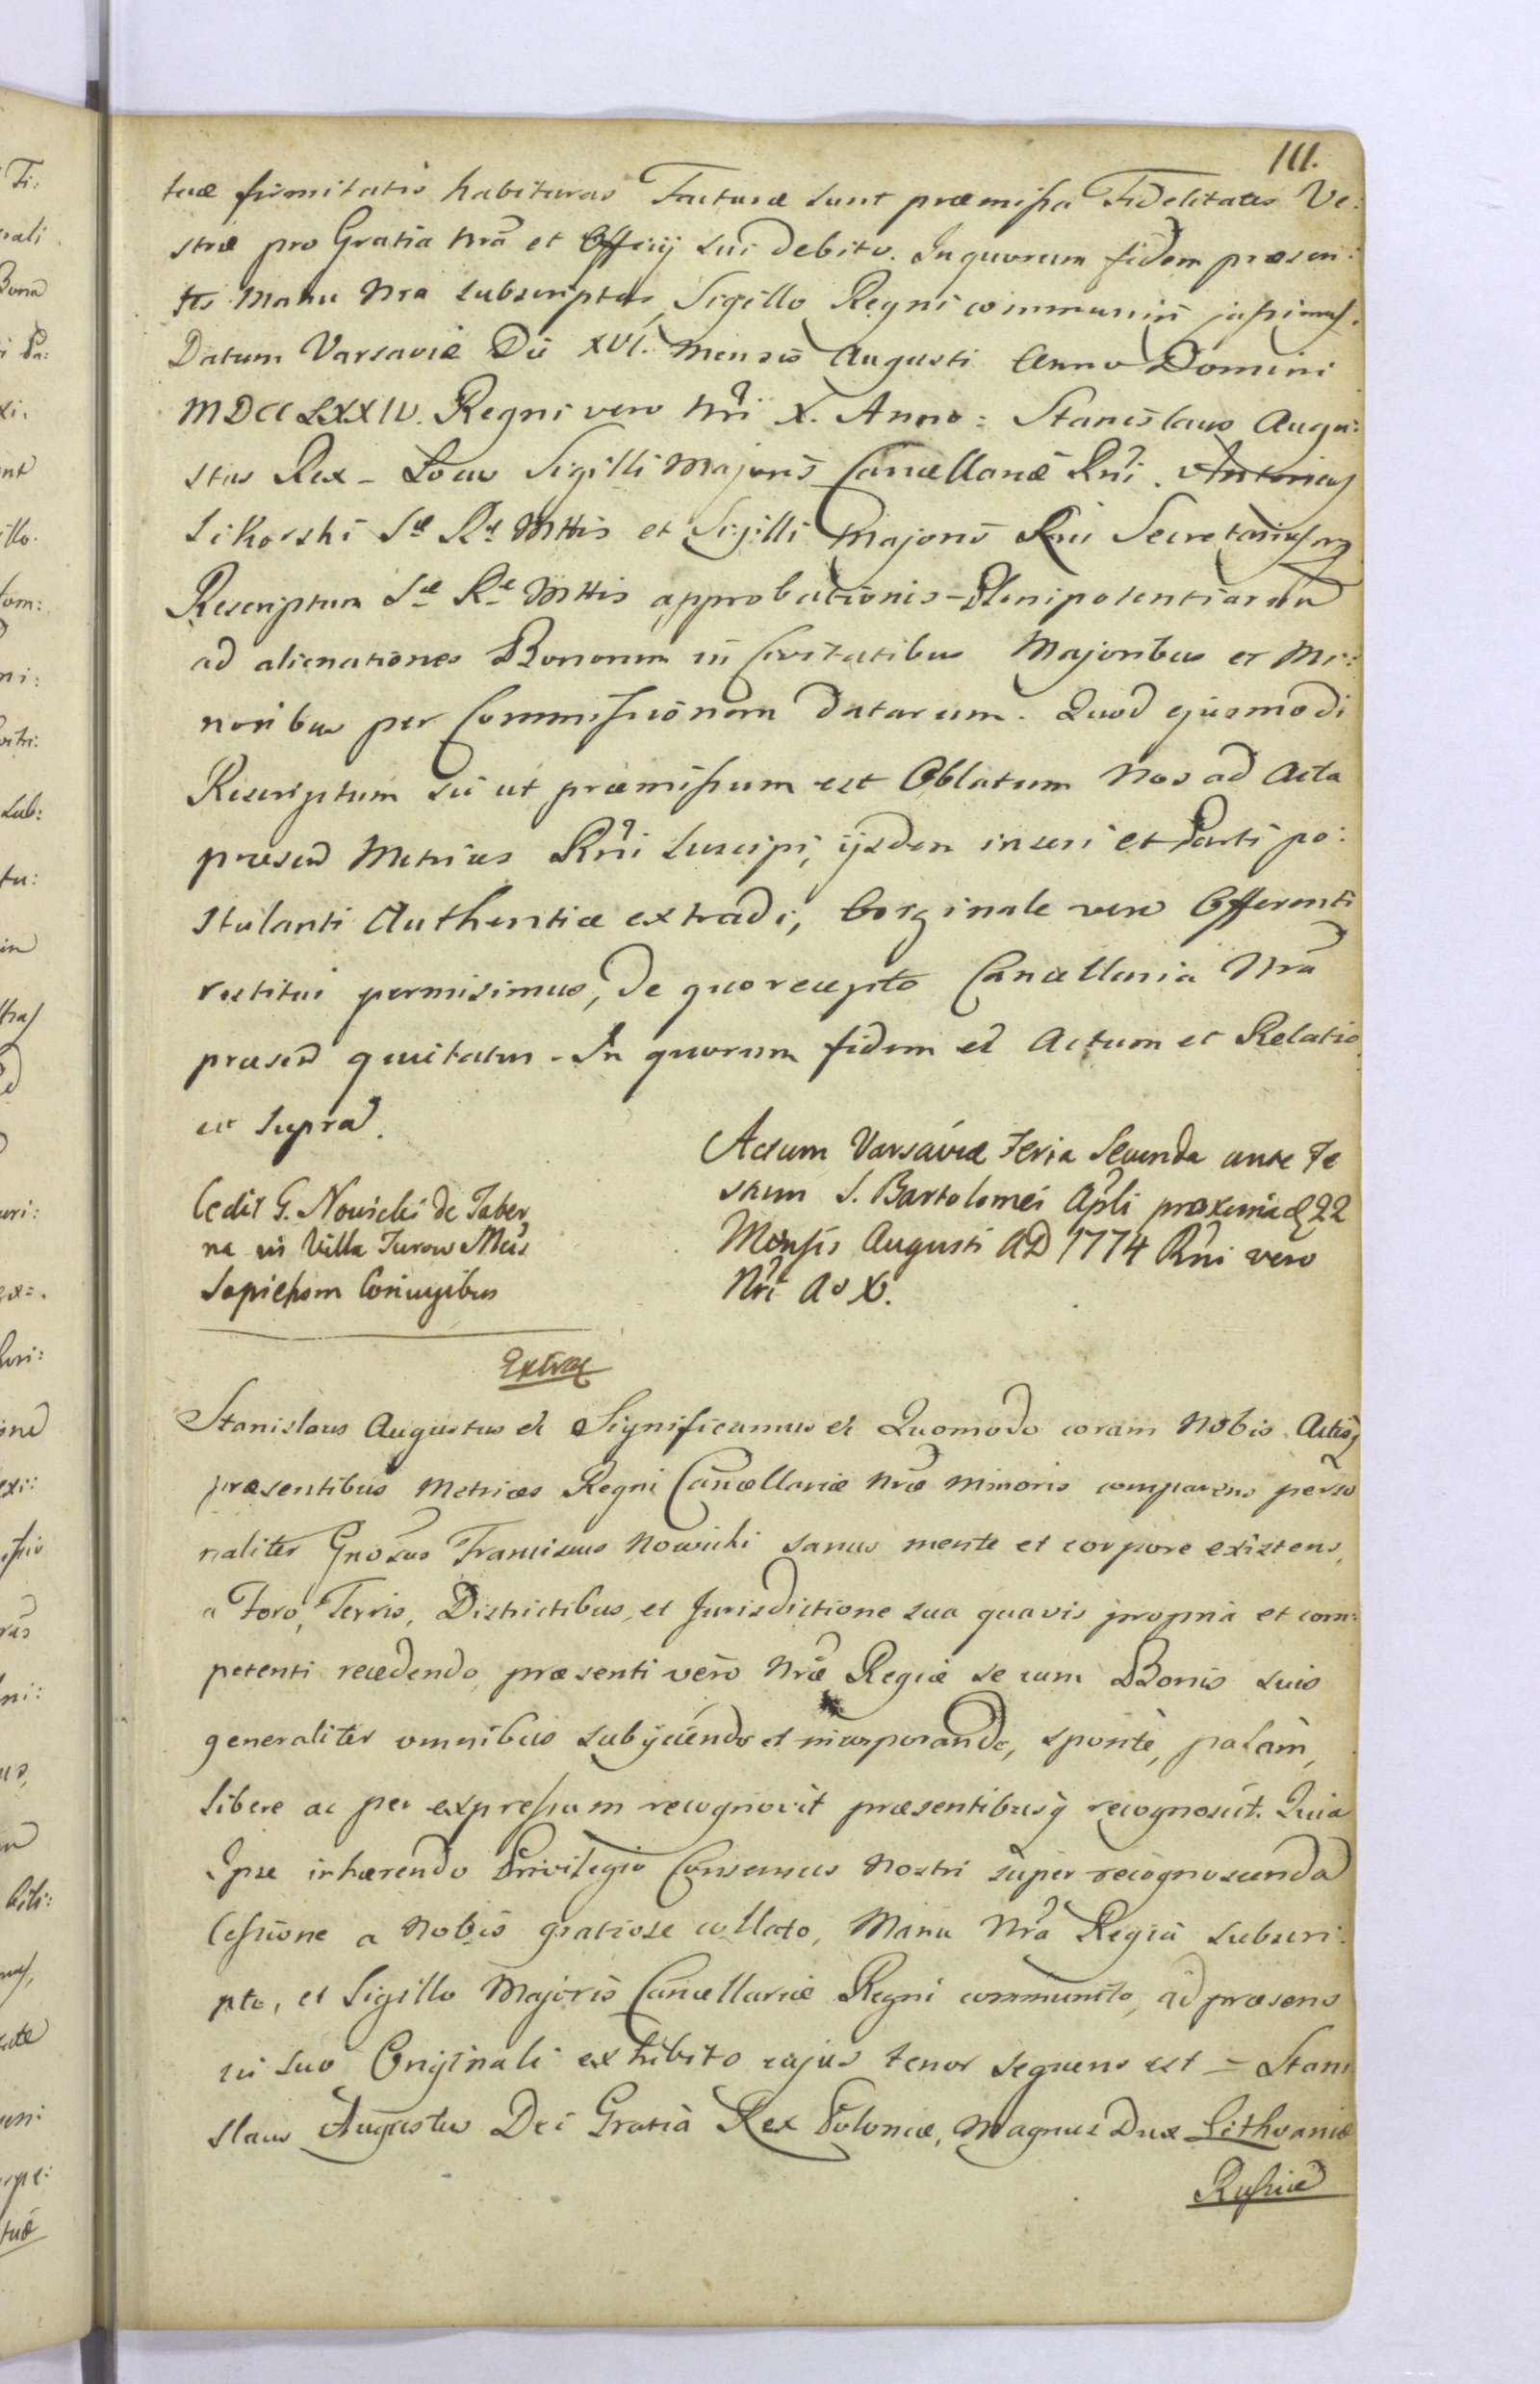 111.
tuæ firmitatis habituras Facturæ sunt præmissa Fidelitates Ve:
stræ pro Gratia Nrã et Officij sui debito. In quorum fidem præsen:
tes Manu Nra subscriptas, Sigillo Regni communiri jussimus.
Datum Varsaviæ Die XVI. Mensis Augusti Anno Domini
MDCCLXXIV. Regni vero Nri X. Anno = Stanislaus Augu:
stus Rex – Locus Sigilli Majoris Cancellariæ Rni. Antonius
Sikorski Sæ Ræ Mttis et Sigilli Majoris Rni Secretarius
Rescriptum Sæ Ræ Mttis approbationis Plenipotentiarum
ad alienationes Bonorum in Civitatibus Majoribus et Mi:
noribus per Commissionem datarum. Quod ejusmodi
Rescriptum sic ut præmissum est Oblatum Nos ad Acta
præsen Metrices Rni suscipi, ijsdem inseri et Parti po:
stulanti Authentice extradi, Originale vero Offerenti
restitui permisimus, de quo recepto Cancellaria Nra
præsen quitatur. In quorum fidem et Actum et Relatio
ut supra.
Actum Varsaviæ Feria Secunda ante Fe
stum S. Bartolomei Apli proxima d 22
Mensis Augusti AD 1774 Rni vero
Nri Ao X.
Cedit G. Nowicki de Taber
na in Villa Turow Mcis
Sapiehom Coniugibus
Extrac
Stanislaus Augustus et Significamus et Quomodo coram Nobis Actisq
præsentibus Metrices Regni Cancellariæ Nræ Minoris comparens perso
naliter Gnosus Franciscus Nowicki sanus mente et corpore existens,
a Foro, Terris, Districtibus, et Jurisdictione sua quavis propria et com:
petenti recedendo, præsenti vero Nræ Regiæ se cum Bonis suis
generaliter omnibus subijciendo et incorporando, sponte, palam,
libere ac per expressum recognovit præsentibusq recognoscit. Quia
Ipse inhærendo Privilegio Consensus Nostri super recognoscenda
Cessione a Nobis gratiose collato, Manu Nra Regia subscri:
pto, et Sigillo Majoris Cancellariæ Regni communito, ad præsens
in suo Originali exhibito cujus tenor sequens est = Stani
slaus Augustus Dei Gratia Rex Poloniæ, Magnus Dux Lithvaniæ
Russiæ